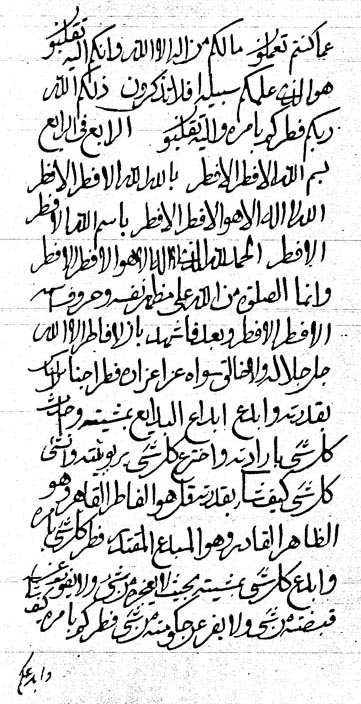 عما كنتم تعملون مالكم من اله الا الله وانكم اليه تقلبون
هو الذى علمكم سبيله افلا تذكرون ذلكم الله
ربكم فطركم بامره واليه تقلبون الرابع فى الرابع
بسم الله الافطر الافطر بالله الله الافطر الافطر
الله لا اله الا هو الافطر الافطر باسم الله الافطر
الافطر الحمد لله الذى لا اله الا هو الافطر الافطر
وانما الصلوة من الله على مظهر نفسه وحروف
الافطر الافطر وبعد فاشهد بان لا فاطر الا الله
جل جلاله ولا خالق سواه عز اعزازه فطر
بقدرته وابدع ابداع البدايع بمشيته
كل شىء بارادته واخترع كل شىء بربوبيته وانشئ
كل شىء كيف شاء بقدرته قل هو الفاطر القاهر وهو
الظاهر القادر وهو المبدع المقتدر فطر كل شىء بامره
وابدع كل شىء بمشيته بحيث لا يعجزه من شىء ولا يفوت عن
قبضته من شىء ولا يفر عن حكومته من شىء فطركم بامره كيف
وابدعكم